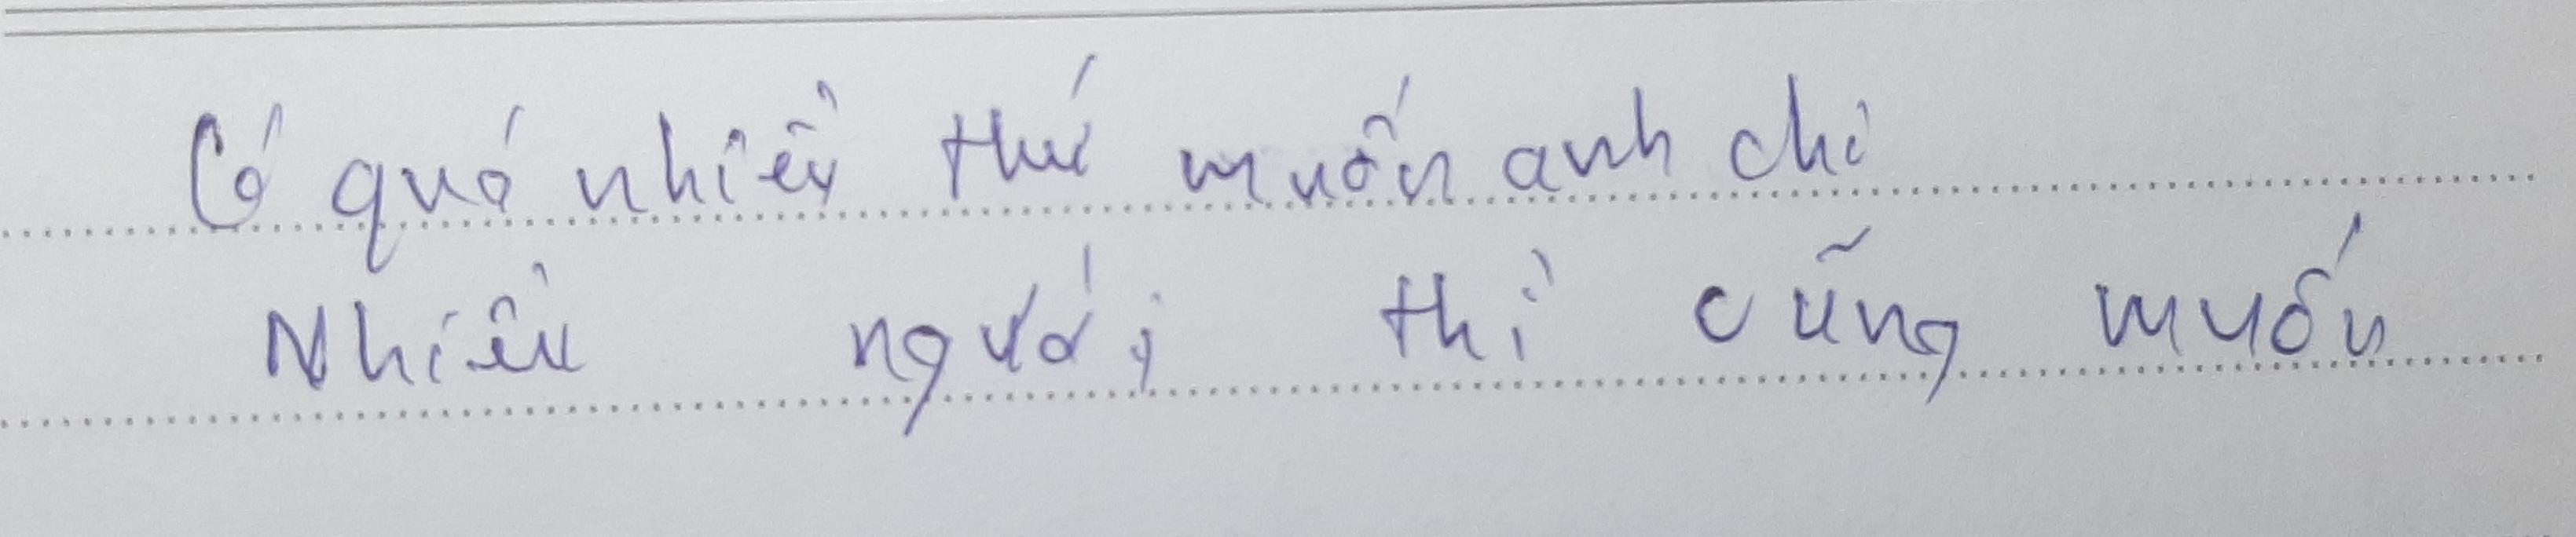 Có quá nhiều thứ muốn anh chỉ
Nhiều người thì cũng muốn